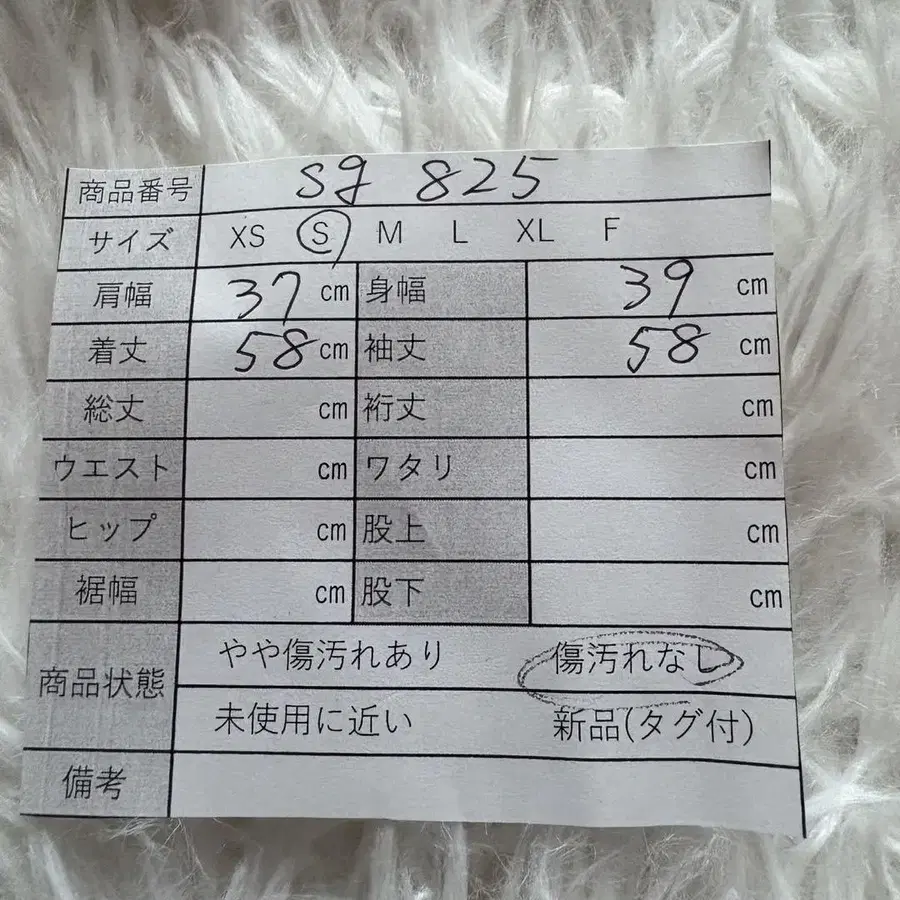 商品番号 sg 825
サイズ XS S M L XL F
肩幅 37 cm 身幅 39 cm
着丈 58 cm 袖丈 58 cm
総丈 cm 裄丈 cm
ウエスト cm ワタリ cm
ヒップ cm 股上 cm
裾幅 cm 股下 cm
商品状態 やや傷汚れあり 傷汚れなし
未使用に近い 新品(タグ付)
備考